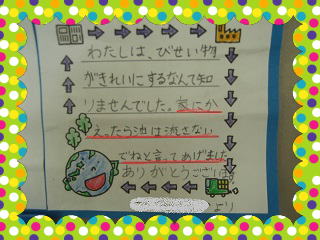 わたしは、びせい物
がきれいにするなんて知
りませんでした。家にか
えったら油は流さない
でねと言ってあげます
ありがとうござい
より